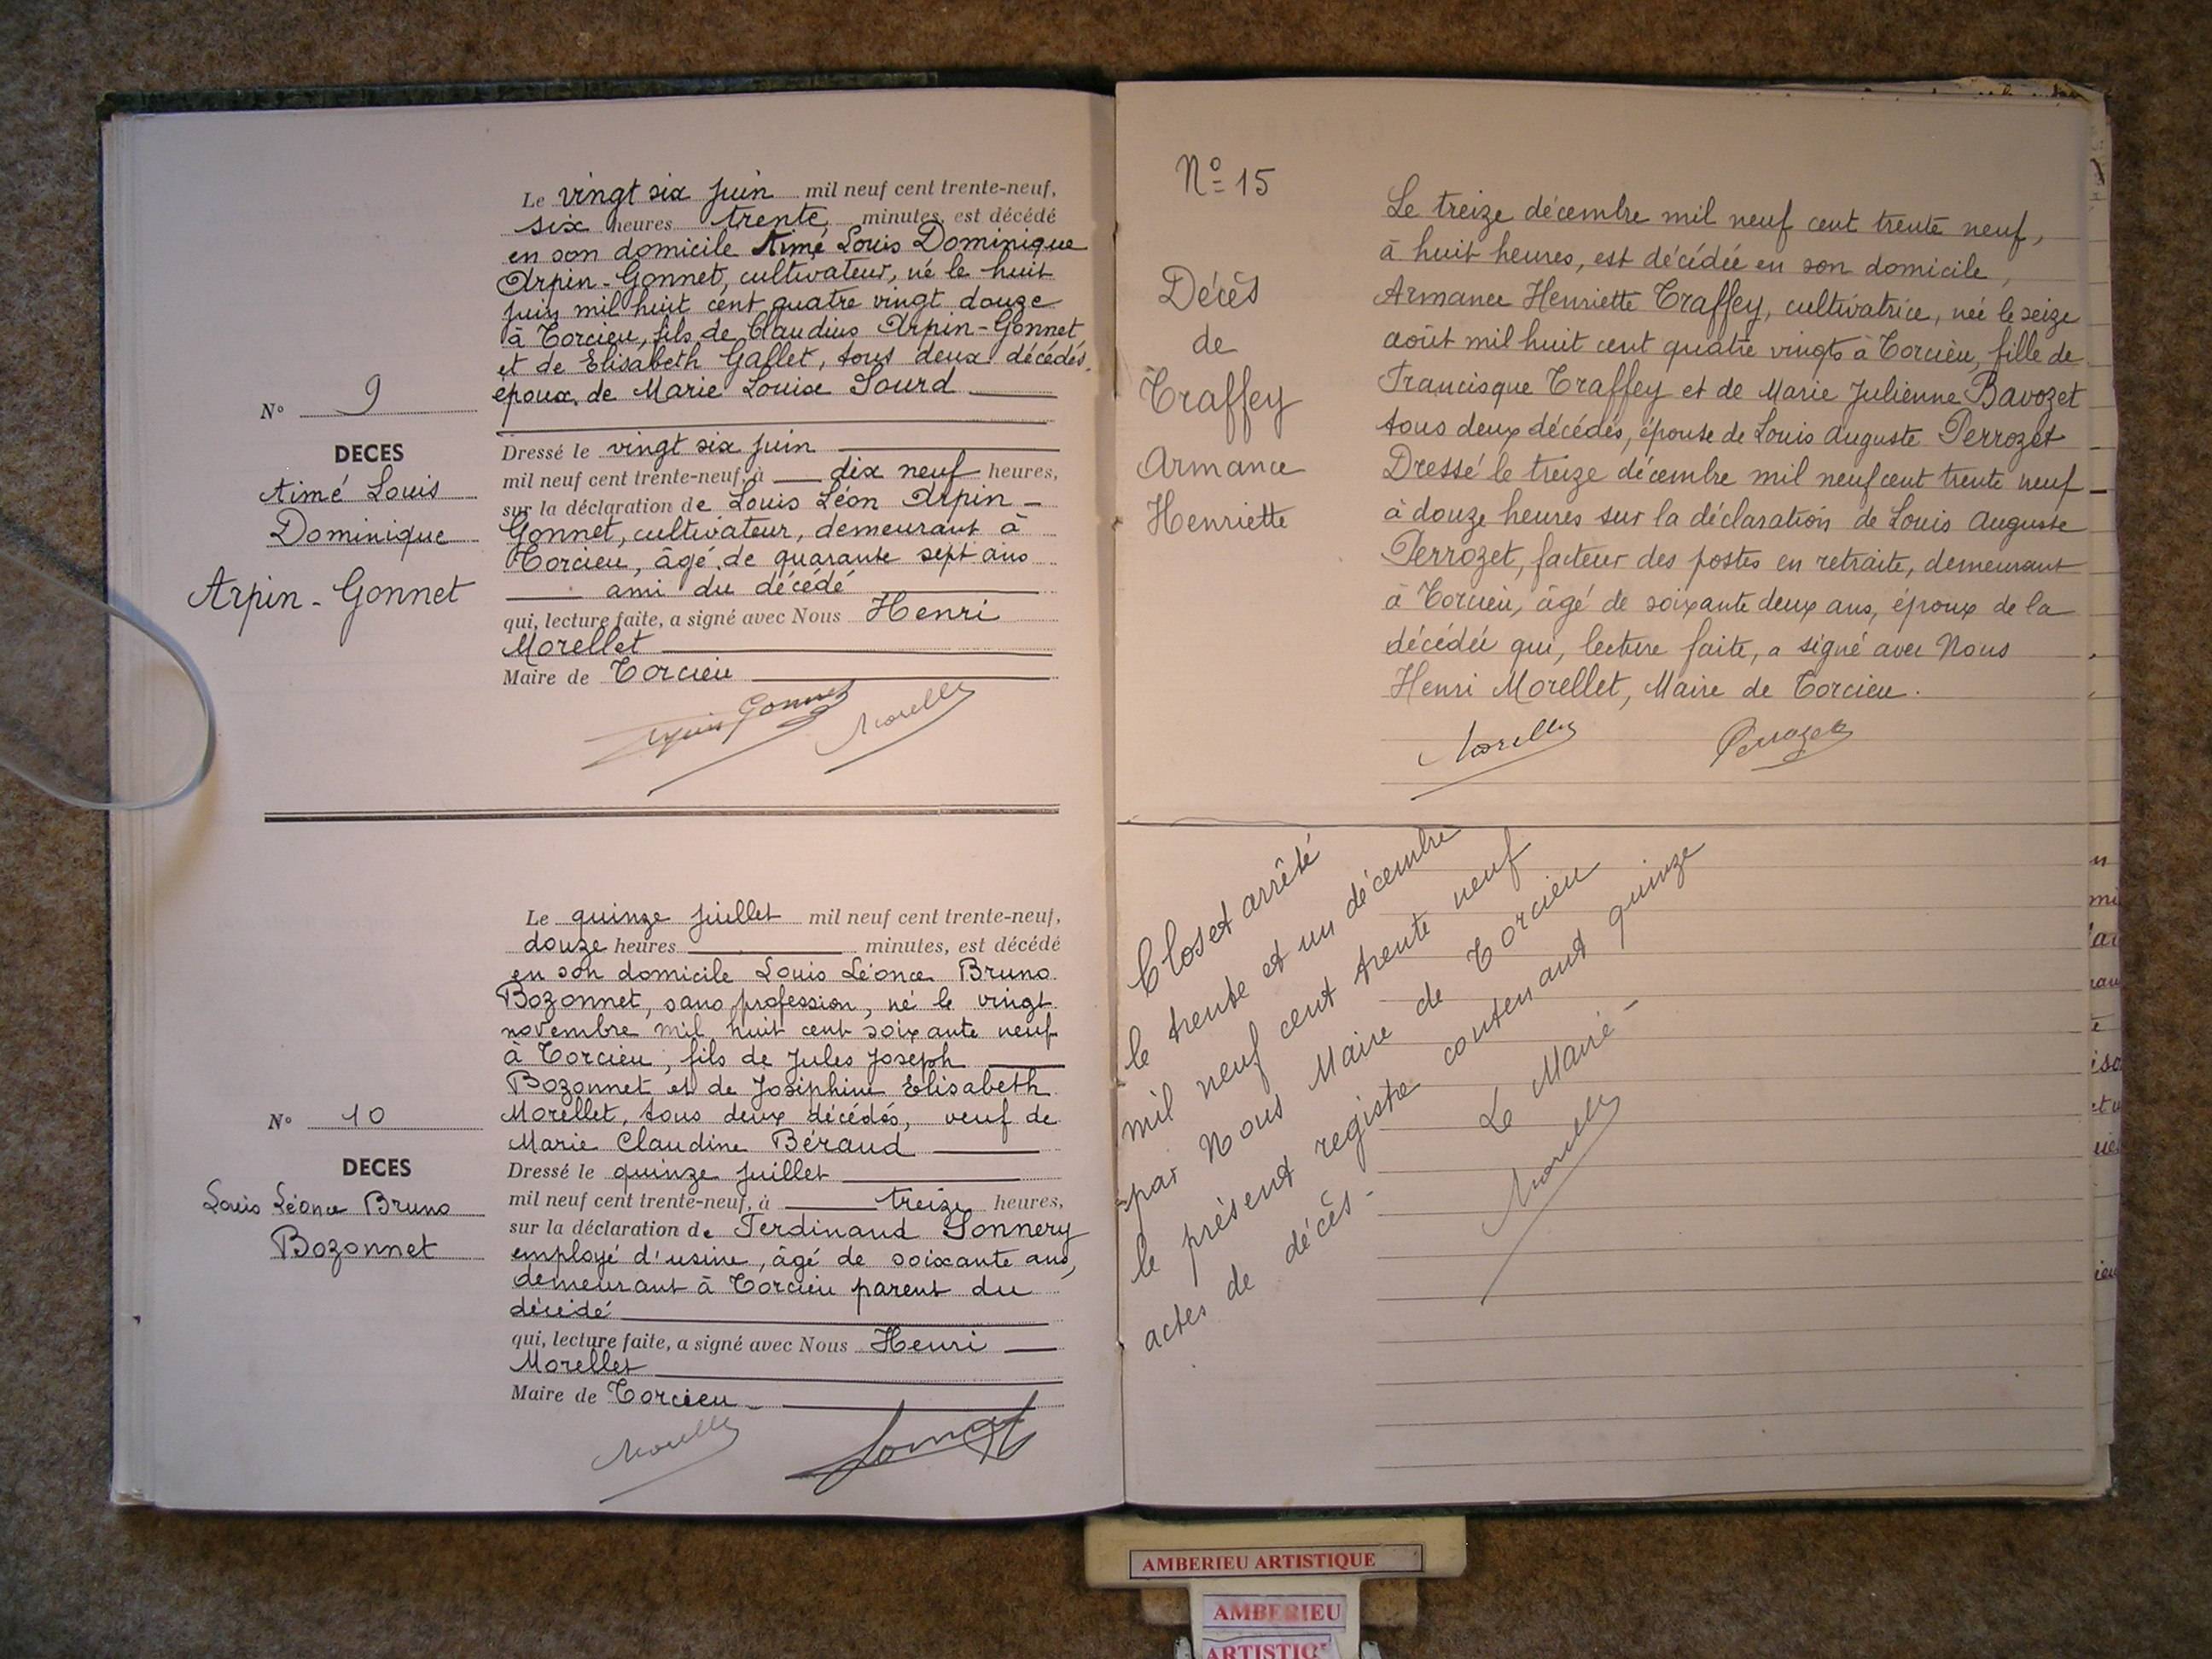 Le vingt six juin mil neuf cent trente-neuf,
six heures trente minutes, est décédé
en son domicile Aimé Louis Dominique
Arpin-Gonnet, cultivateur, né le huit
juin mil huit cent quatre vingt douze
à Torcieu, fils de Claudius Arpin-Gonnet
et de Elisabeth Gallet, tous deux décédés,
époux de Marie Louise Sourd
N° 9
DECES
Aimé Louis
Dominique
Arpin-Gonnet
Dressé le vingt six juin
mil neuf cent trente-neuf, à dix neuf heures,
sur la déclaration de Louis Léon Arpin-
Gonnet, cultivateur, demeurant à
Torcieu, âgé de quarante sept ans
ami du décédé
qui, lecture faite, a signé avec Nous Henri
Morellet
Maire de Torcieu
Arpin Gonnet Morellet
Le quinze juillet mil neuf cent trente-neuf,
douze heures minutes, est décédé
en son domicile Louis Léonce Bruno
Bozonnet, sans profession, né le vingt
novembre mil huit cent soixante neuf
à Torcieu, fils de Jules Joseph
Bozonnet et de Joséphine Elisabeth
Morellet, tous deux décédés, veuf de
Marie Claudine Béraud
N° 10
DECES
Louis Léonce Bruno
Bozonnet
Dressé le quinze juillet
mil neuf cent trente-neuf, à treize heures,
sur la déclaration de Ferdinand Sonnery
employé d'usine, âgé de soixante ans,
demeurant à Torcieu parent du
décédé
qui, lecture faite, a signé avec Nous Henri
Morellet
Maire de Torcieu
Morellet
N° 15
Décès
de
Traffey
Armance
Henriette
Le treize décembre mil neuf cent trente neuf,
à huit heures, est décédée en son domicile,
Armance Henriette Traffey, cultivatrice, née le seize
août mil huit cent quatre vingts à Torcieu, fille de
Francisque Traffey et de Marie Julienne Bavozet
tous deux décédés, épouse de Louis Auguste Perrozet
Dressé le treize décembre mil neuf cent trente neuf
à douze heures sur la déclaration de Louis Auguste
Perrozet, facteur des postes en retraite, demeurant
à Torcieu, âgé de soixante deux ans, époux de la
décédée qui, lecture faite, a signé avec Nous
Henri Morellet, Maire de Torcieu.
Morellet Perrozet
Clos et arrêté
le trente et un décembre
mil neuf cent trente neuf
par Nous Maire de Torcieu
le présent registre contenant quinze
actes de décès-
Le Maire-
Morellet
AMBERIEU ARTISTIQUE
AMBERIEU
ARTISTIQ